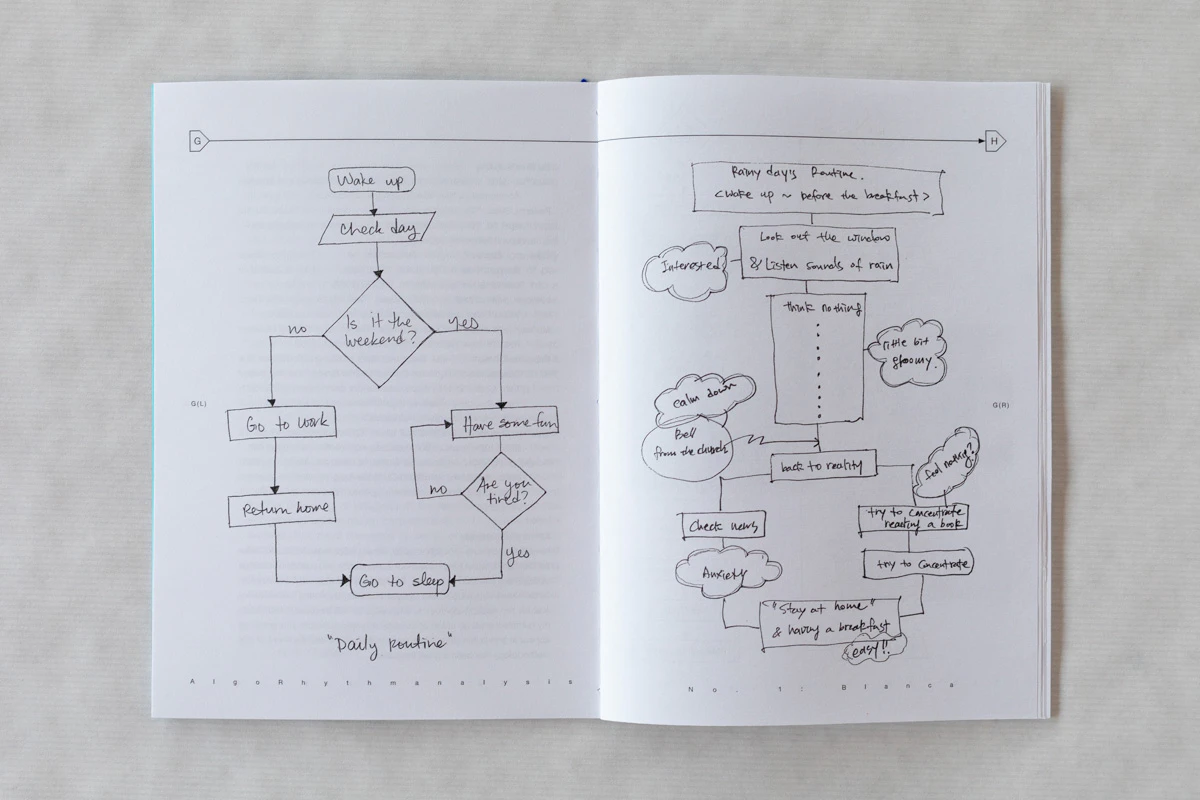 G
Wake up
Check day
Is it the
weekend?
no
yes
Go to work
Have some fun
Are you
tired?
no
Return home
yes
Go to sleep
"Daily Routine"
G(L)
AlgoRhythmanalysis
H
Rainy day's Routine.
<Wake up ~ before the breakfast>
Look out the window
& Listen sounds of rain
Interested
think nothing
little bit
gloomy.
calm down
Bell
from the church
back to reality
feel nothing?
Check news
try to concentrate
reading a book
Anxiety
try to concentrate
"Stay at home"
& having a breakfast
easy!!
G(R)
No. 1: Blanca